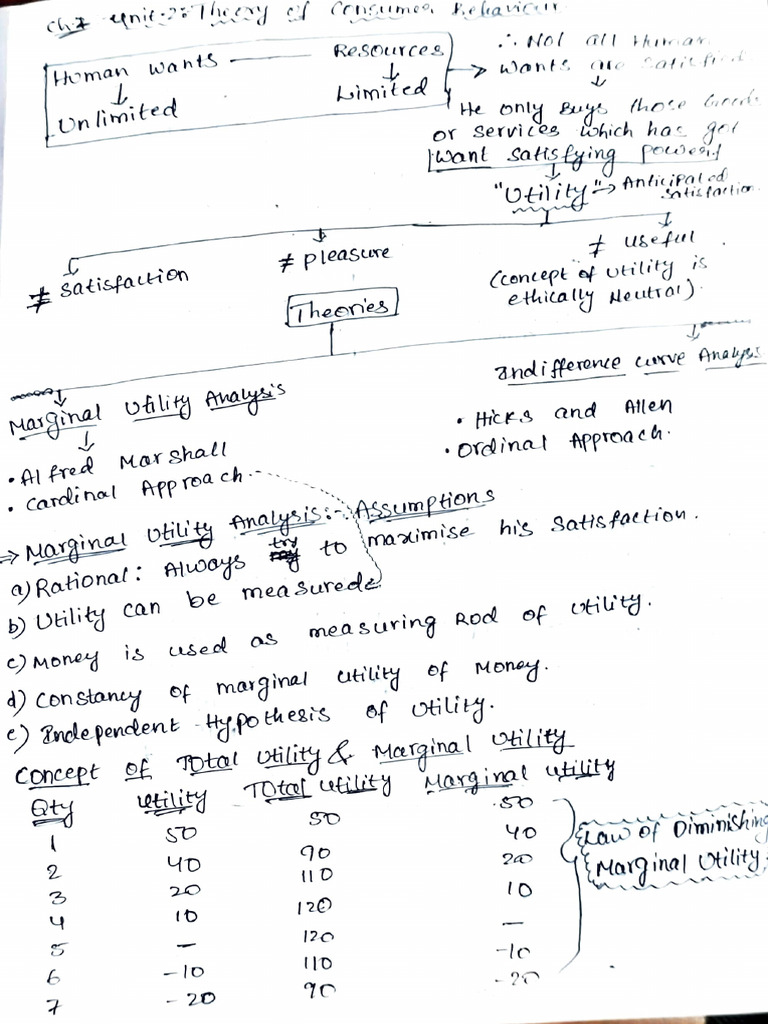 Ch.2 Unit-2: Theory of Consumer Behaviour
Human wants — Resources
↓ ↓
Unlimited Limited
∴ Not all Human
→ Wants are Satisfied
↓
He only Buys those Goods
or services which has got
Want satisfying power
↓
"Utility" → Anticipated
satisfaction.
≠ Satisfaction
≠ pleasure
≠ useful
(concept of utility is
ethically Neutral).
Theories
Marginal Utility Analysis
↓
• Alfred Marshall
• Cardinal Approach
Indifference curve Analysis
• Hicks and Allen
• Ordinal Approach.
⇒ Marginal Utility Analysis:- Assumptions
a) Rational: Always try to maximise his satisfaction.
b) Utility can be measured
c) Money is used as measuring Rod of utility.
d) Constancy of marginal utility of Money.
e) Independent Hypothesis of Utility.
Concept of Total Utility & Marginal Utility
Qty Utility Total Utility Marginal Utility
1 50 50 50
2 40 90 40
3 20 110 20
4 10 120 10
5 – 120 –
6 -10 110 -10
7 -20 90 -20
Law of Diminishing
Marginal Utility